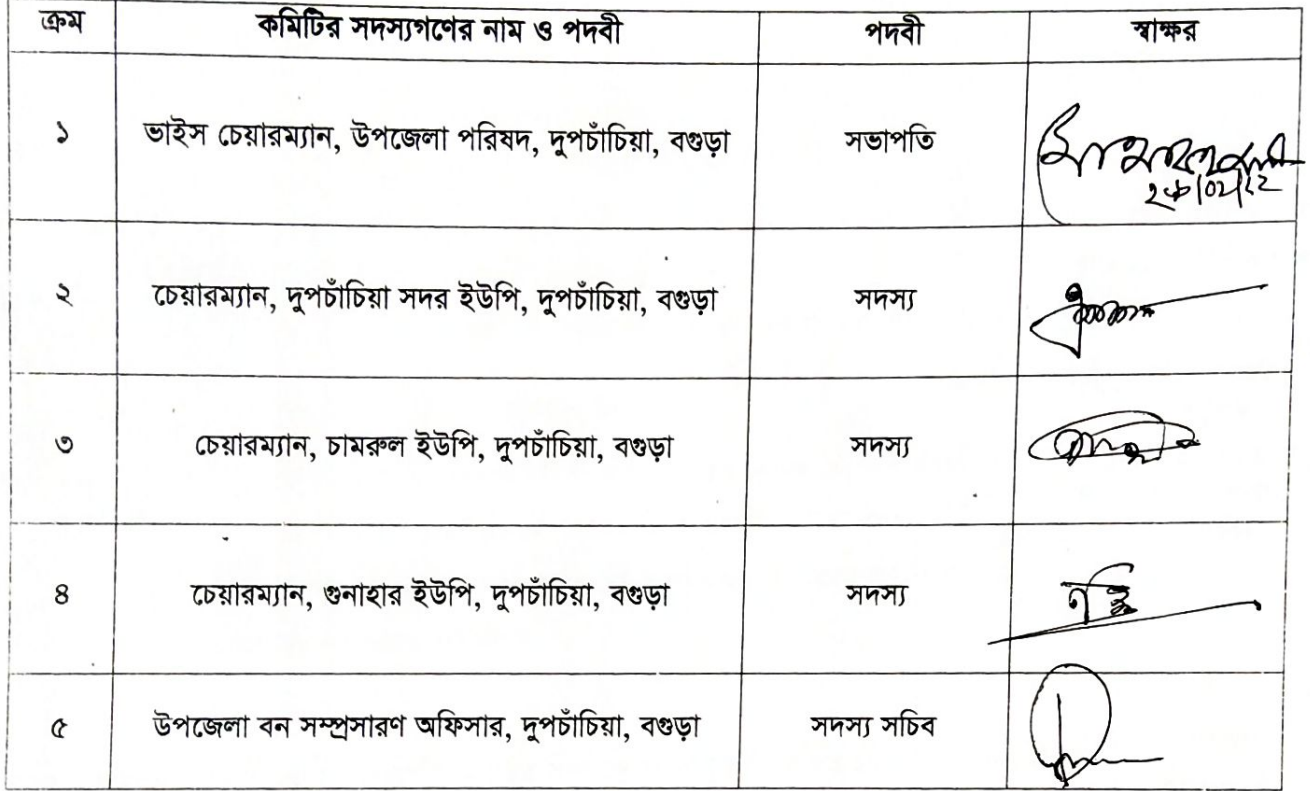 ক্রম কমিটির সদস্যগণের নাম ও পদবী পদবী স্বাক্ষর
১ ভাইস চেয়ারম্যান, উপজেলা পরিষদ, দুপচাঁচিয়া, বগুড়া সভাপতি
২ চেয়ারম্যান, দুপচাঁচিয়া সদর ইউপি, দুপচাঁচিয়া, বগুড়া সদস্য
৩ চেয়ারম্যান, চামরুল ইউপি, দুপচাঁচিয়া, বগুড়া সদস্য
৪ চেয়ারম্যান, গুনাহার ইউপি, দুপচাঁচিয়া, বগুড়া সদস্য
৫ উপজেলা বন সম্প্রসারণ অফিসার, দুপচাঁচিয়া, বগুড়া সদস্য সচিব